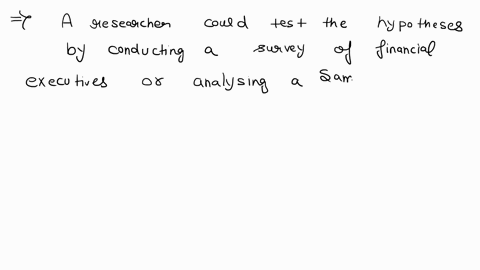 ⇒ A researcher could test the hypotheses
by conducting a survey of financial
executives or analysing a Sam